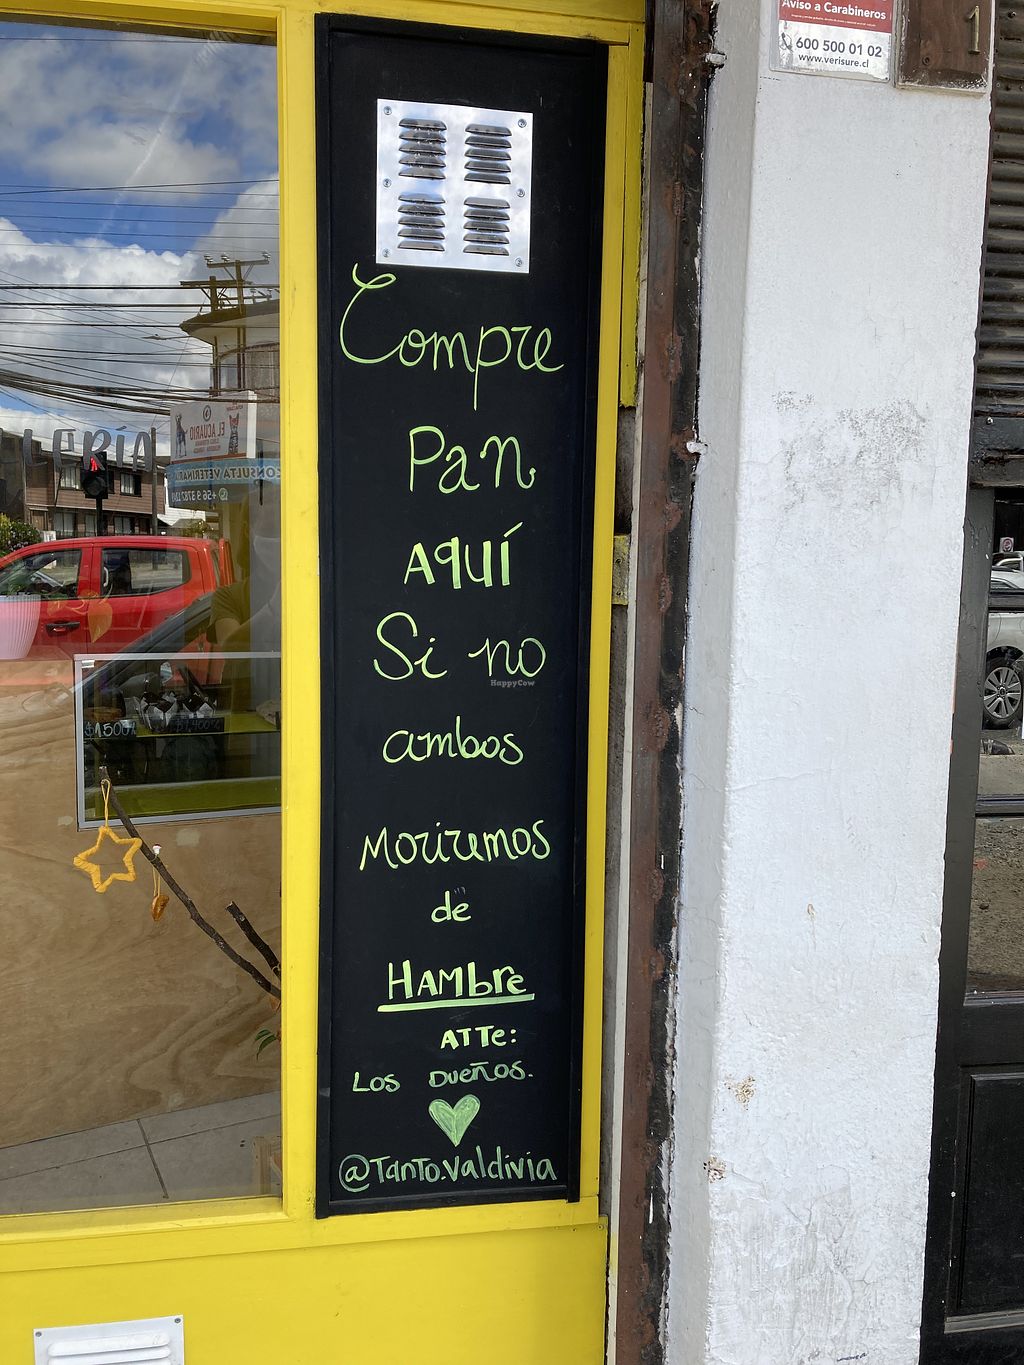 Aviso a Carabineros
600 500 01 02
www.verisure.cl
1
Compre
Pan
AQUÍ
Si no
HappyCow
ambos
Moriremos
de
HAMbre
ATTe:
LOS DUEÑOS.
@TanTo.Valdivia
LERÍA
EL ACUARIO
CONSULTA VETERINARIA